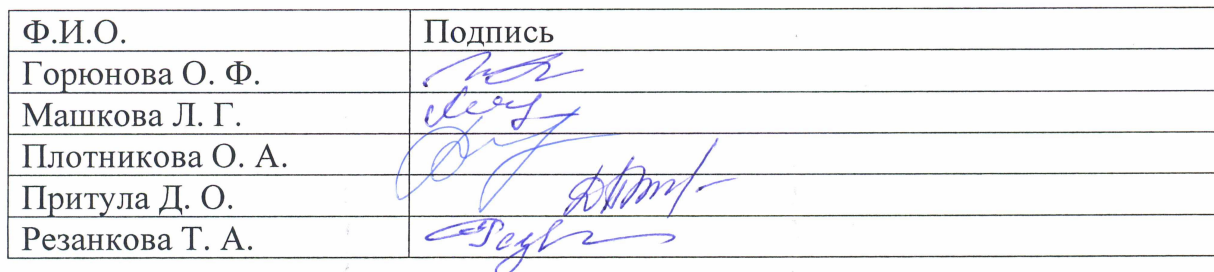 Ф.И.О. Подпись
Горюнова О. Ф.
Машкова Л. Г.
Плотникова О. А.
Притула Д. О.
Резанкова Т. А.